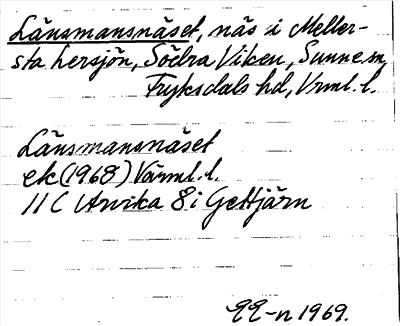 Länsmansnäset, näs i Meller-
sta Lersjön, Södra Viken, Sunne sn,
Fryksdals hd, Vrml. l.
Länsmansnäset
ek (1968) Värml. l.
11 C Arvika 8 i Gettjärn
-n 1969.